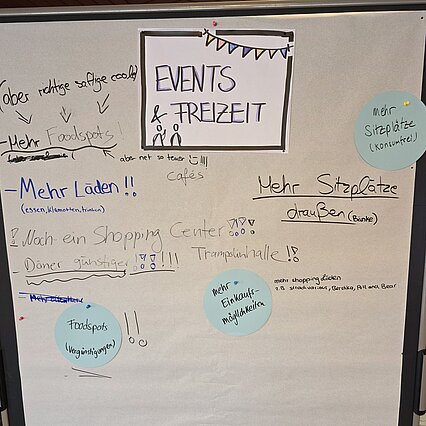 (aber richtige saftige coole)
EVENTS
& FREIZEIT
- Mehr Foodspots!
aber net so teuer
cafés
mehr
Sitzplätze
(konsumfrei)
- Mehr Läden!!
(essen, Klamotten, trinken)
Mehr Sitzplätze
draußen (Bänke)
Noch ein Shopping Center
- Döner günstiger
Trampolinhalle
mehr shopping läden
z.B stradivarious, Bershka, Pull and Bear
mehr
Einkaufs-
möglichkeiten
Foodspots
(Vergünstigungen)